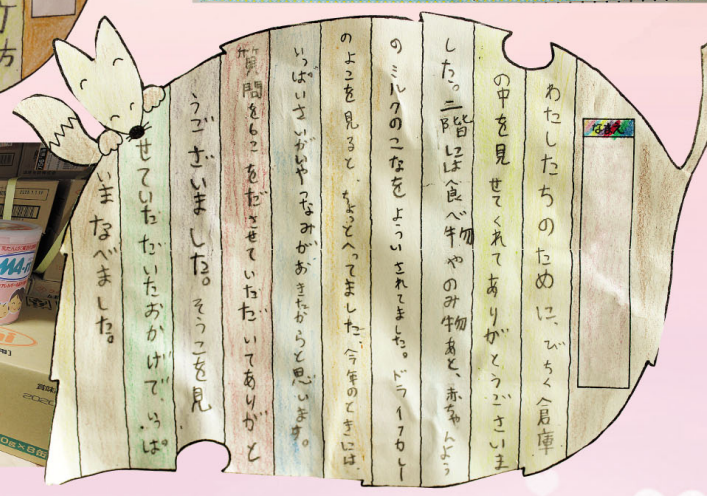 なまえ
わたしたちのために、びちく倉庫
の中を見せてくれてありがとうございま
した。二階には食べ物やのみ物あと、赤ちゃんよう
のミルクのこなをよういされてました。ドライフカレー
のよこを見ると、ちょっとへってました。今年のときには
いっぱいさいがいやつなみがおきたからと思います。
質問を6こをださせていただいてありがと
うございました。そうこを見
せていただいたおかげで、いっぱ
いまなべました。
方